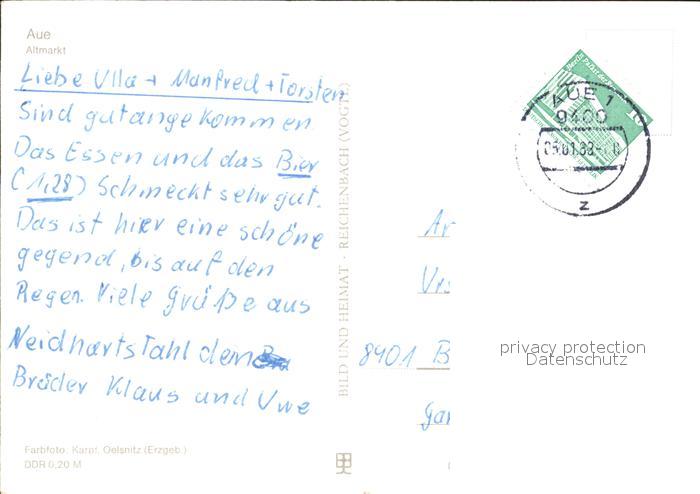 Aue
Altmarkt
Liebe Ulla + Manfred + Torsten
Sind gutangekommen
Das Essen und das Bier
(1,28) Schmeckt sehr gut.
Das ist hier eine schöne
gegend, bis auf den
Regen. Viele Grüße aus
Neidhartstahl den
Brüder Klaus und Uwe
Farbfoto: Karpf, Oelsnitz (Erzgeb.)
DDR 0,20 M
BILD UND HEIMAT · REICHENBACH (VOGTL)
AUE 1
9400
z
8401 B
privacy protection
Datenschutz